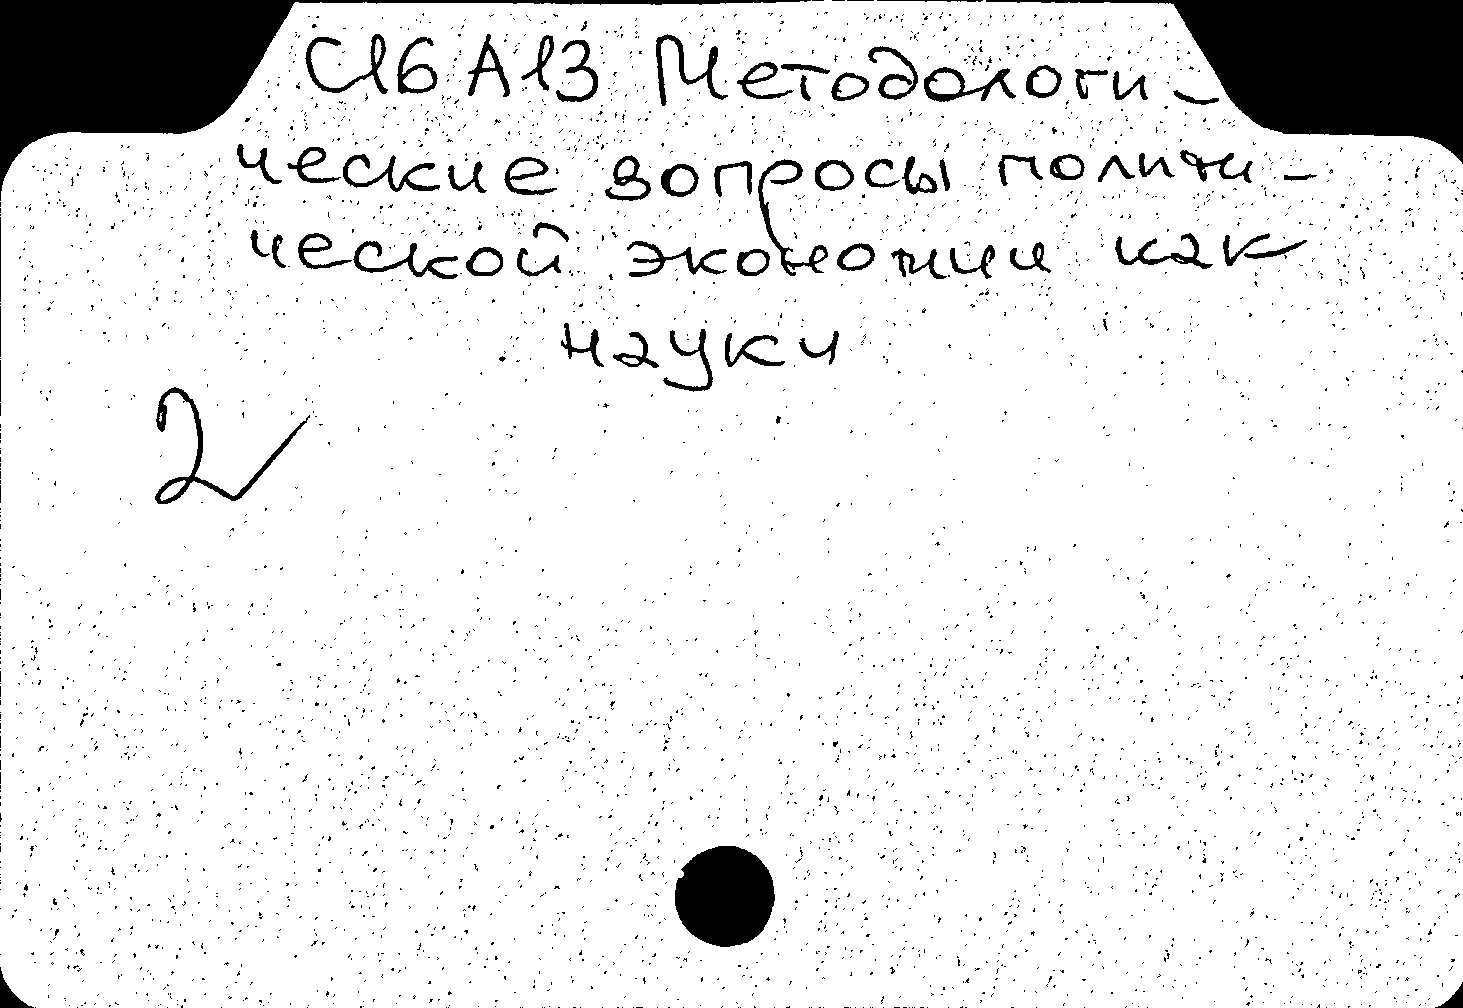 С16 А13 Методологи-
ческие вопросы полити-
ческой экономии как
науки
2